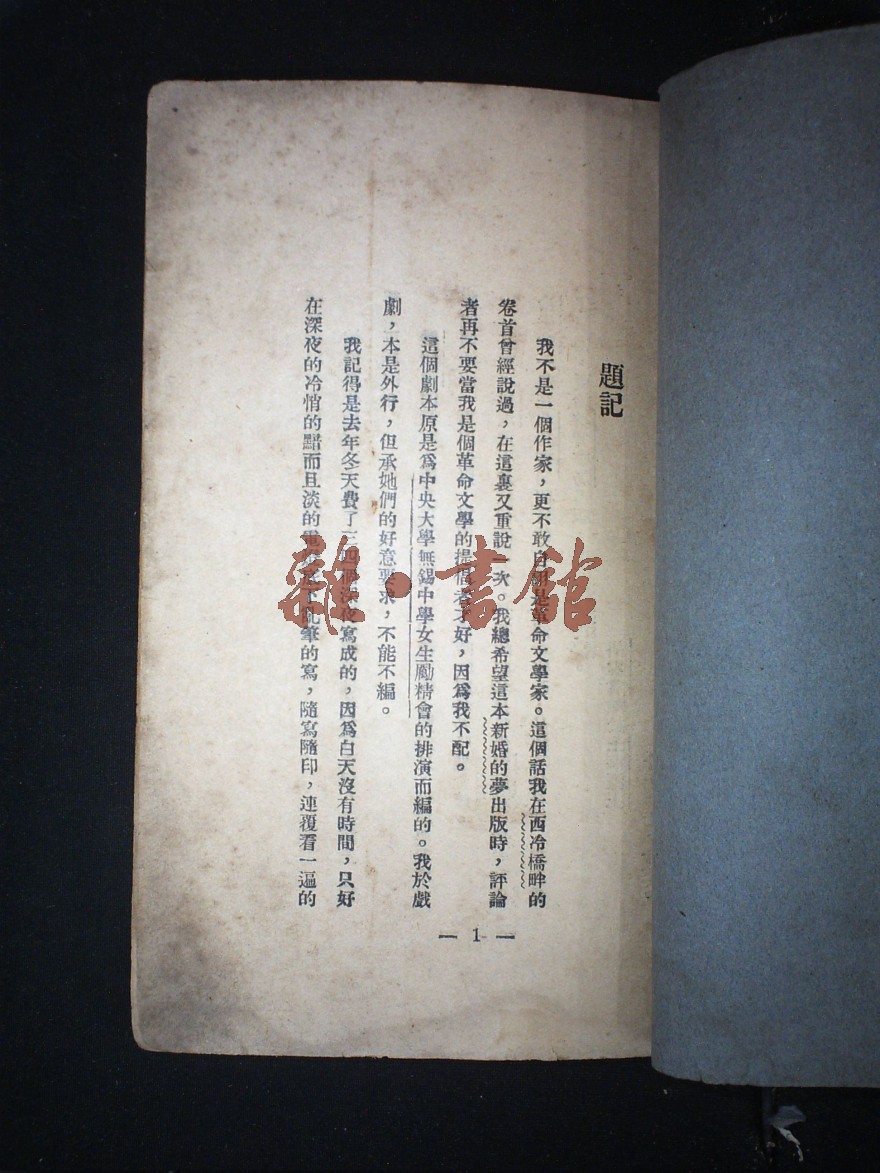 題記
我不是一個作家，更不敢自詡是革命文學家。這個話我在西冷橋畔的
卷首曾經說過，在這裏又重說一次。我總希望這本新婚的夢出版時，評論
者再不要當我是個革命文學的提倡者才好，因爲我不配。
這個劇本原是爲中央大學無錫中學女生勵精會的排演而編的。我於戲
劇，本是外行，但承她們的好意要求，不能不編。
我記得是去年冬天費了三四個深夜寫成的，因爲白天沒有時間，只好
在深夜的冷悄的黯而且淡的電燈底下亂筆的寫，隨寫隨印，連覆看一遍的
— 1 —
雜·書館